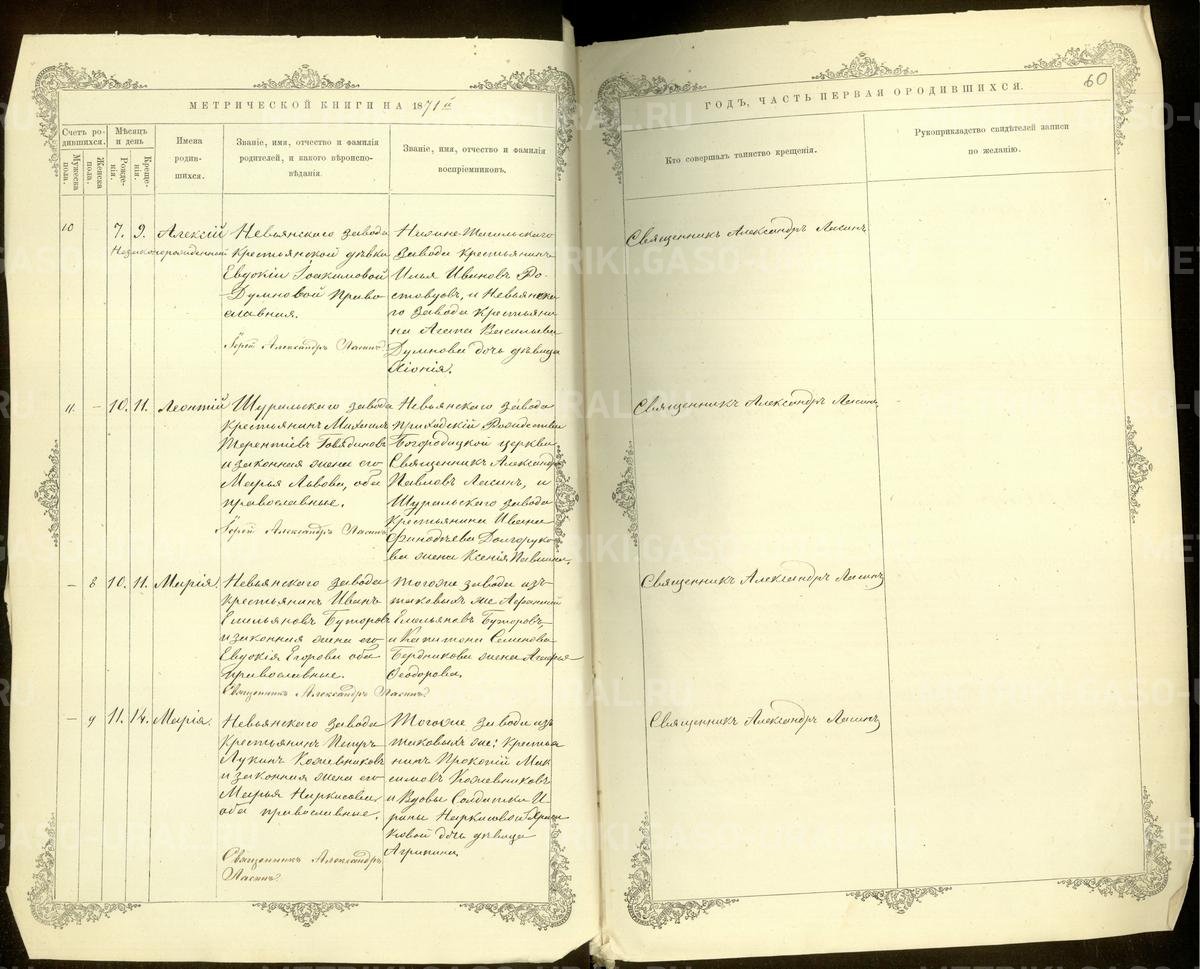 МЕТРИЧЕСКОЙ КНИГИ НА 1871й
ГОДЪ, ЧАСТЬ ПЕРВАЯ О РОДИВШИХСЯ.
60
Счетъ ро-
дившихся.
Мужеска
пола.
Женска
пола.
Мѣсяцъ
и день
Рожде-
нія.
Креще-
нія.
Имена
родив-
шихся.
Званіе, имя, отчество и фамилія
родителей, и какого вѣроиспо-
вѣданія.
Званіе, имя, отчество и фамилія
воспріемниковъ.
Кто совершалъ таинство крещенія.
Рукоприкладство свидѣтелей записи
по желанію.
10 7. 9. Алексій
Незаконорожденный
Невьянскаго завода
крестьянской дѣвки
Евдокіи Іоакимовой
Думновой право
славная.
Іерей Александръ
Нижне-Тагильскаго
завода крестьянинъ
Илья Ивановъ Ро-
стовцовъ, и Невьянска
го завода крестьяни
на Агапа Васильева
Думнова дочь дѣвица
Хіонія.
Священникъ Александръ
11. – 10. 11. Леонтій
Шуральскаго завода
крестьянинъ Михаилъ
Терентіевъ Говядиновъ
и законная жена его
Марья Львова, оба
православные.
Іерей Александръ
Невьянскаго завода
приходскій Рождество
Богородицкой церкви
Священникъ Александръ
Павловъ и
Шуральскаго завода
крестьянина Ивана
Долгоруко
ва жена Ксенія
Священникъ Александръ
– 8 10. 11. Марія
Невьянскаго завода
крестьянинъ Иванъ
Емильяновъ Буторовъ
и законная жена его
Евдокія Егорова оба
православные.
Священникъ Александръ
Тогоже завода изъ
таковыхъ же Афанасій
Емельяновъ Буторовъ,
и Капитона Семенова
Бердникова жена
Ѳеодорова.
Священникъ Александръ
– 9 11. 14. Марія.
Невьянскаго завода
крестьянинъ Петръ
Лукинъ Кожевниковъ
и законная жена его
Марья Наркисова
оба православные.
Священникъ Александръ
Тогоже завода изъ
таковыхъ же: крестья
нинъ Прокопій Мак
симовъ Кожевниковъ
и Вдовы Солдатки И-
рины Наркисовой
ковой дочь дѣвица
Агрипина
Священникъ Александръ
METRIKI.GASO-URAL.RU